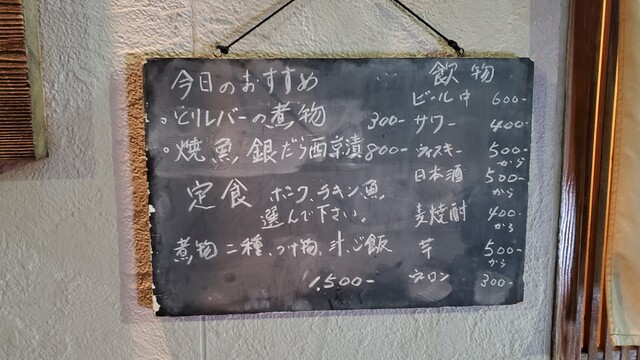 今日のおすすめ
。とりレバーの煮物 300-
。焼魚、銀だら西京漬 800-
定食 ポーク、チキン、魚、
選んで下さい。
煮物二種、つけ物、汁、ご飯
1,500-
飲物
ビール中 600-
サワー 400-
ウィスキー 500-
から
日本酒 500-
から
麦焼酎 400-
から
芋 500-
から
ウーロン 300-